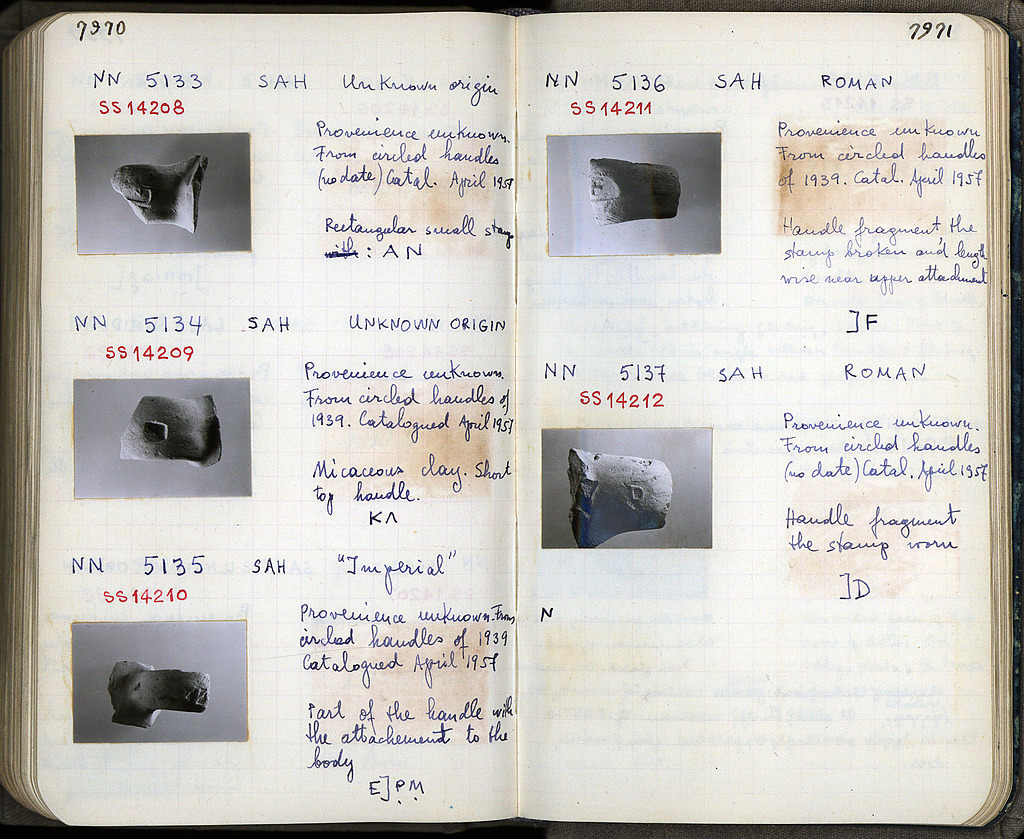 7970
NN 5133 SAH Unknown origin
SS 14208
Provenience unknown.
From circled handles
(no date) Catal. April 1957
Rectangular small stamp
with: AN
NN 5134 SAH UNKNOWN ORIGIN
SS 14209
Provenience unknown.
From circled handles of
1939. Catalogued April 1957
Micaceous clay. Short
top handle.
KΛ
NN 5135 SAH "Imperial"
SS 14210
Provenience unknown. From
circled handles of 1939
Catalogued April 1957
Part of the handle with
the attachement to the
body
E]P.M.
7971
NN 5136 SAH ROMAN
SS 14211
Provenience unknown
From circled handles
of 1939. Catal. April 1957
Handle fragment, the
stamp broken and length
wise near upper attachment
]F
NN 5137 SAH ROMAN
SS 14212
Provenience unknown.
From circled handles
(no date) Catal. April 1957
Handle fragment
the stamp worn
]D
N